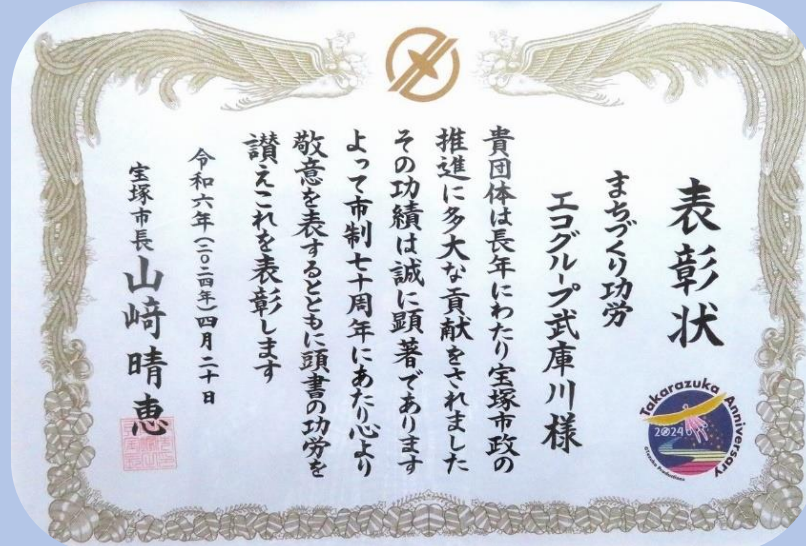 表彰状
まちづくり功労
エコグループ武庫川様
貴団体は長年にわたり宝塚市政の
推進に多大な貢献をされました
その功績は誠に顕著であります
よって市制七十周年にあたり心より
敬意を表するとともに頭書の功労を
讃えこれを表彰します
令和六年(二〇二四年)四月二十日
宝塚市長 山﨑晴恵
Takarazuka Anniversary
2024
©Tezuka Productions